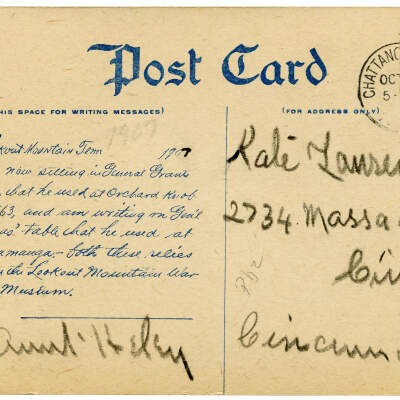 Post Card
THIS SPACE FOR WRITING MESSAGES)
(FOR ADDRESS ONLY)
CHATTANO
OCT
5-
1907
okout Mountain Tenn 1907
now sitting in General Grants
that he used at Orchard Knob
63, and am writing on Gen'l
as' table that he used at
amauga,- both these relics
in the Lookout Mountain War
Museum.
Aunt Heley
Kate Lauren
2734 Massa
Cin
Cincinn
P62